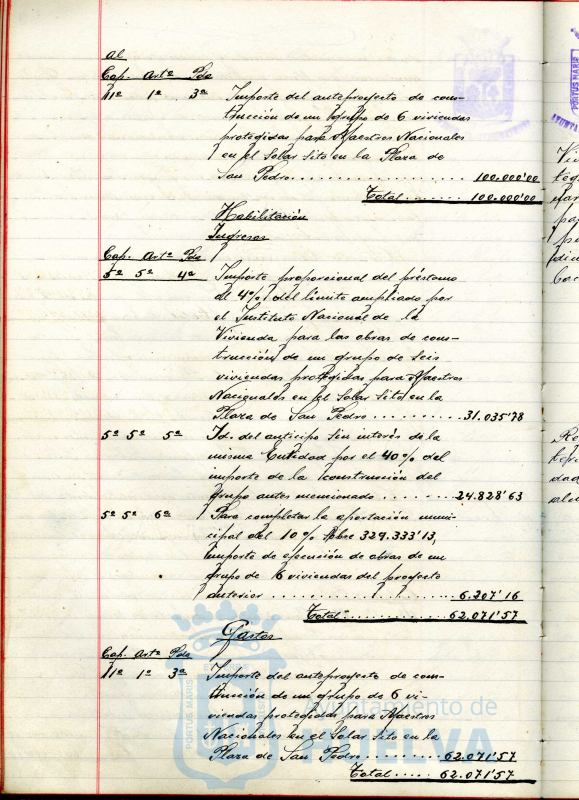 al
Cap. Artº Pda
11º 1º 3ª Importe del anteproyecto de cons-
trucción de un grupo de 6 viviendas
protegidas para Maestros Nacionales
en el Solar Sito en la Plaza de
San Pedro................ 100.000'00
Total....... 100.000'00
Habilitación
Ingresos
Cap. Artº Pda
5º 5º 4ª Importe proporcional del préstamo
al 4% del límite ampliado por
el Instituto Nacional de la
Vivienda para las obras de cons-
trucción de un grupo de seis
viviendas protegidas para Maestros
Nacionales en el Solar Sito en la
Plaza de San Pedro.......... 31.035'78
5º 5º 5ª Id. del anticipo sin interés de la
misma Entidad por el 40% del
importe de la construcción del
grupo antes mencionado........ 24.828'63
5º 5º 6ª Para completar la aportación muni-
cipal del 10% sobre 329.333'13,
importe de ejecución de obras de un
grupo de 6 viviendas del proyecto
anterior.................. 6.207'16
Total............ 62.071'57
Gastos
Cap. Artº Pda
11º 1º 3ª Importe del anteproyecto de cons-
trucción de un grupo de 6 vi-
viendas protegidas para Maestros
Nacionales en el Solar Sito en la
Plaza de San Pedro........ 62.071'57
Total..... 62.071'57
PORTUS MARIS
Ayuntamiento de
HUELVA
PORTUS MARIS